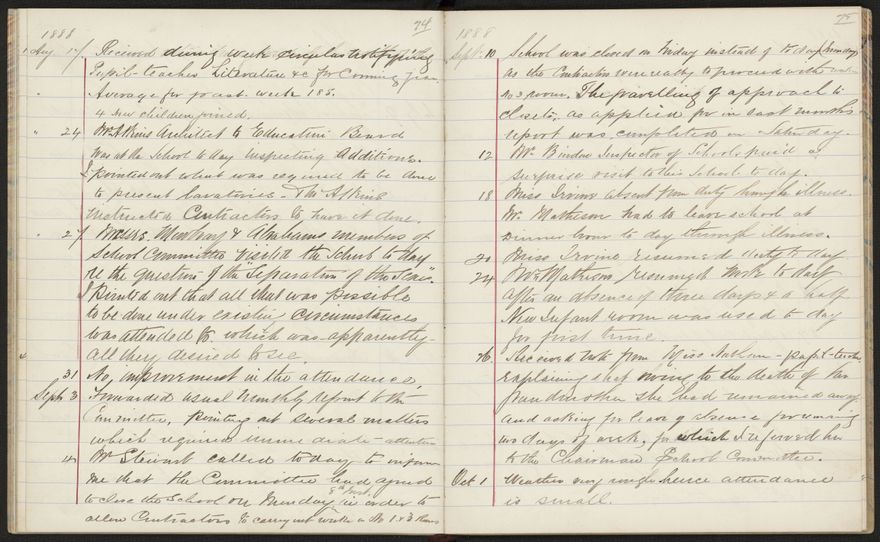 74
1888
Aug 17/. Received during week circulars notifying
Pupil-teacher Literature &c for Coming year.
" Average for past week 185.
4 new children joined.
" 24 Mr Atkins Architect to Education Board
was at the School to day inspecting Additions.
I pointed out what was required to be done
to present lavatories - Mr Atkins
instructed Contractors to have it done.
" 27/. Messrs. & Abrahams members of
School Committee visited the School to day
re the question of the "Separation of the Sexes".
I Pointed out that all that was possible
to be done under existing circumstances
was attended to. which was apparently
all they desired to see.
31 No, improvement in the attendance,
Sept 3 Forwarded usual Monthly report to the
Committee, Pointing out several matters
which required immediate attention
4 Mr Stewart called to day to inform
me that the Committee had agreed
to close the School on Monday in order to
allow Contractors to carry out work in No 1 & 3 Rooms
75
1888
Sept. 10 School was closed on Friday instead of to day (Monday)
as the Contractors were ready to proceed with
No 3 room. The gravelling of approach to
closets, as applied for in last months
report was completed on Saturday.
12 Mr. Inspector of Schools paid a
surprise visit to this School to day.
18 Miss Irvine absent from duty through illness.
Mr. Mathison had to leave school at
dinner hour to day through illness.
20 Miss Irvine resumed duty to day
24 Mr Mathison resumed work to day
after an absence of three days & a half
New Infant room was used to day
for first time.
26. Received note from Miss - pupil-teacher
explaining that owing to the death of her
grandmother she had remained away
and asking for leave of absence for remaining
two days of week, for which I referred her
to the Chairman School Committee.
Oct 1 Weather very rough hence attendance
is small.